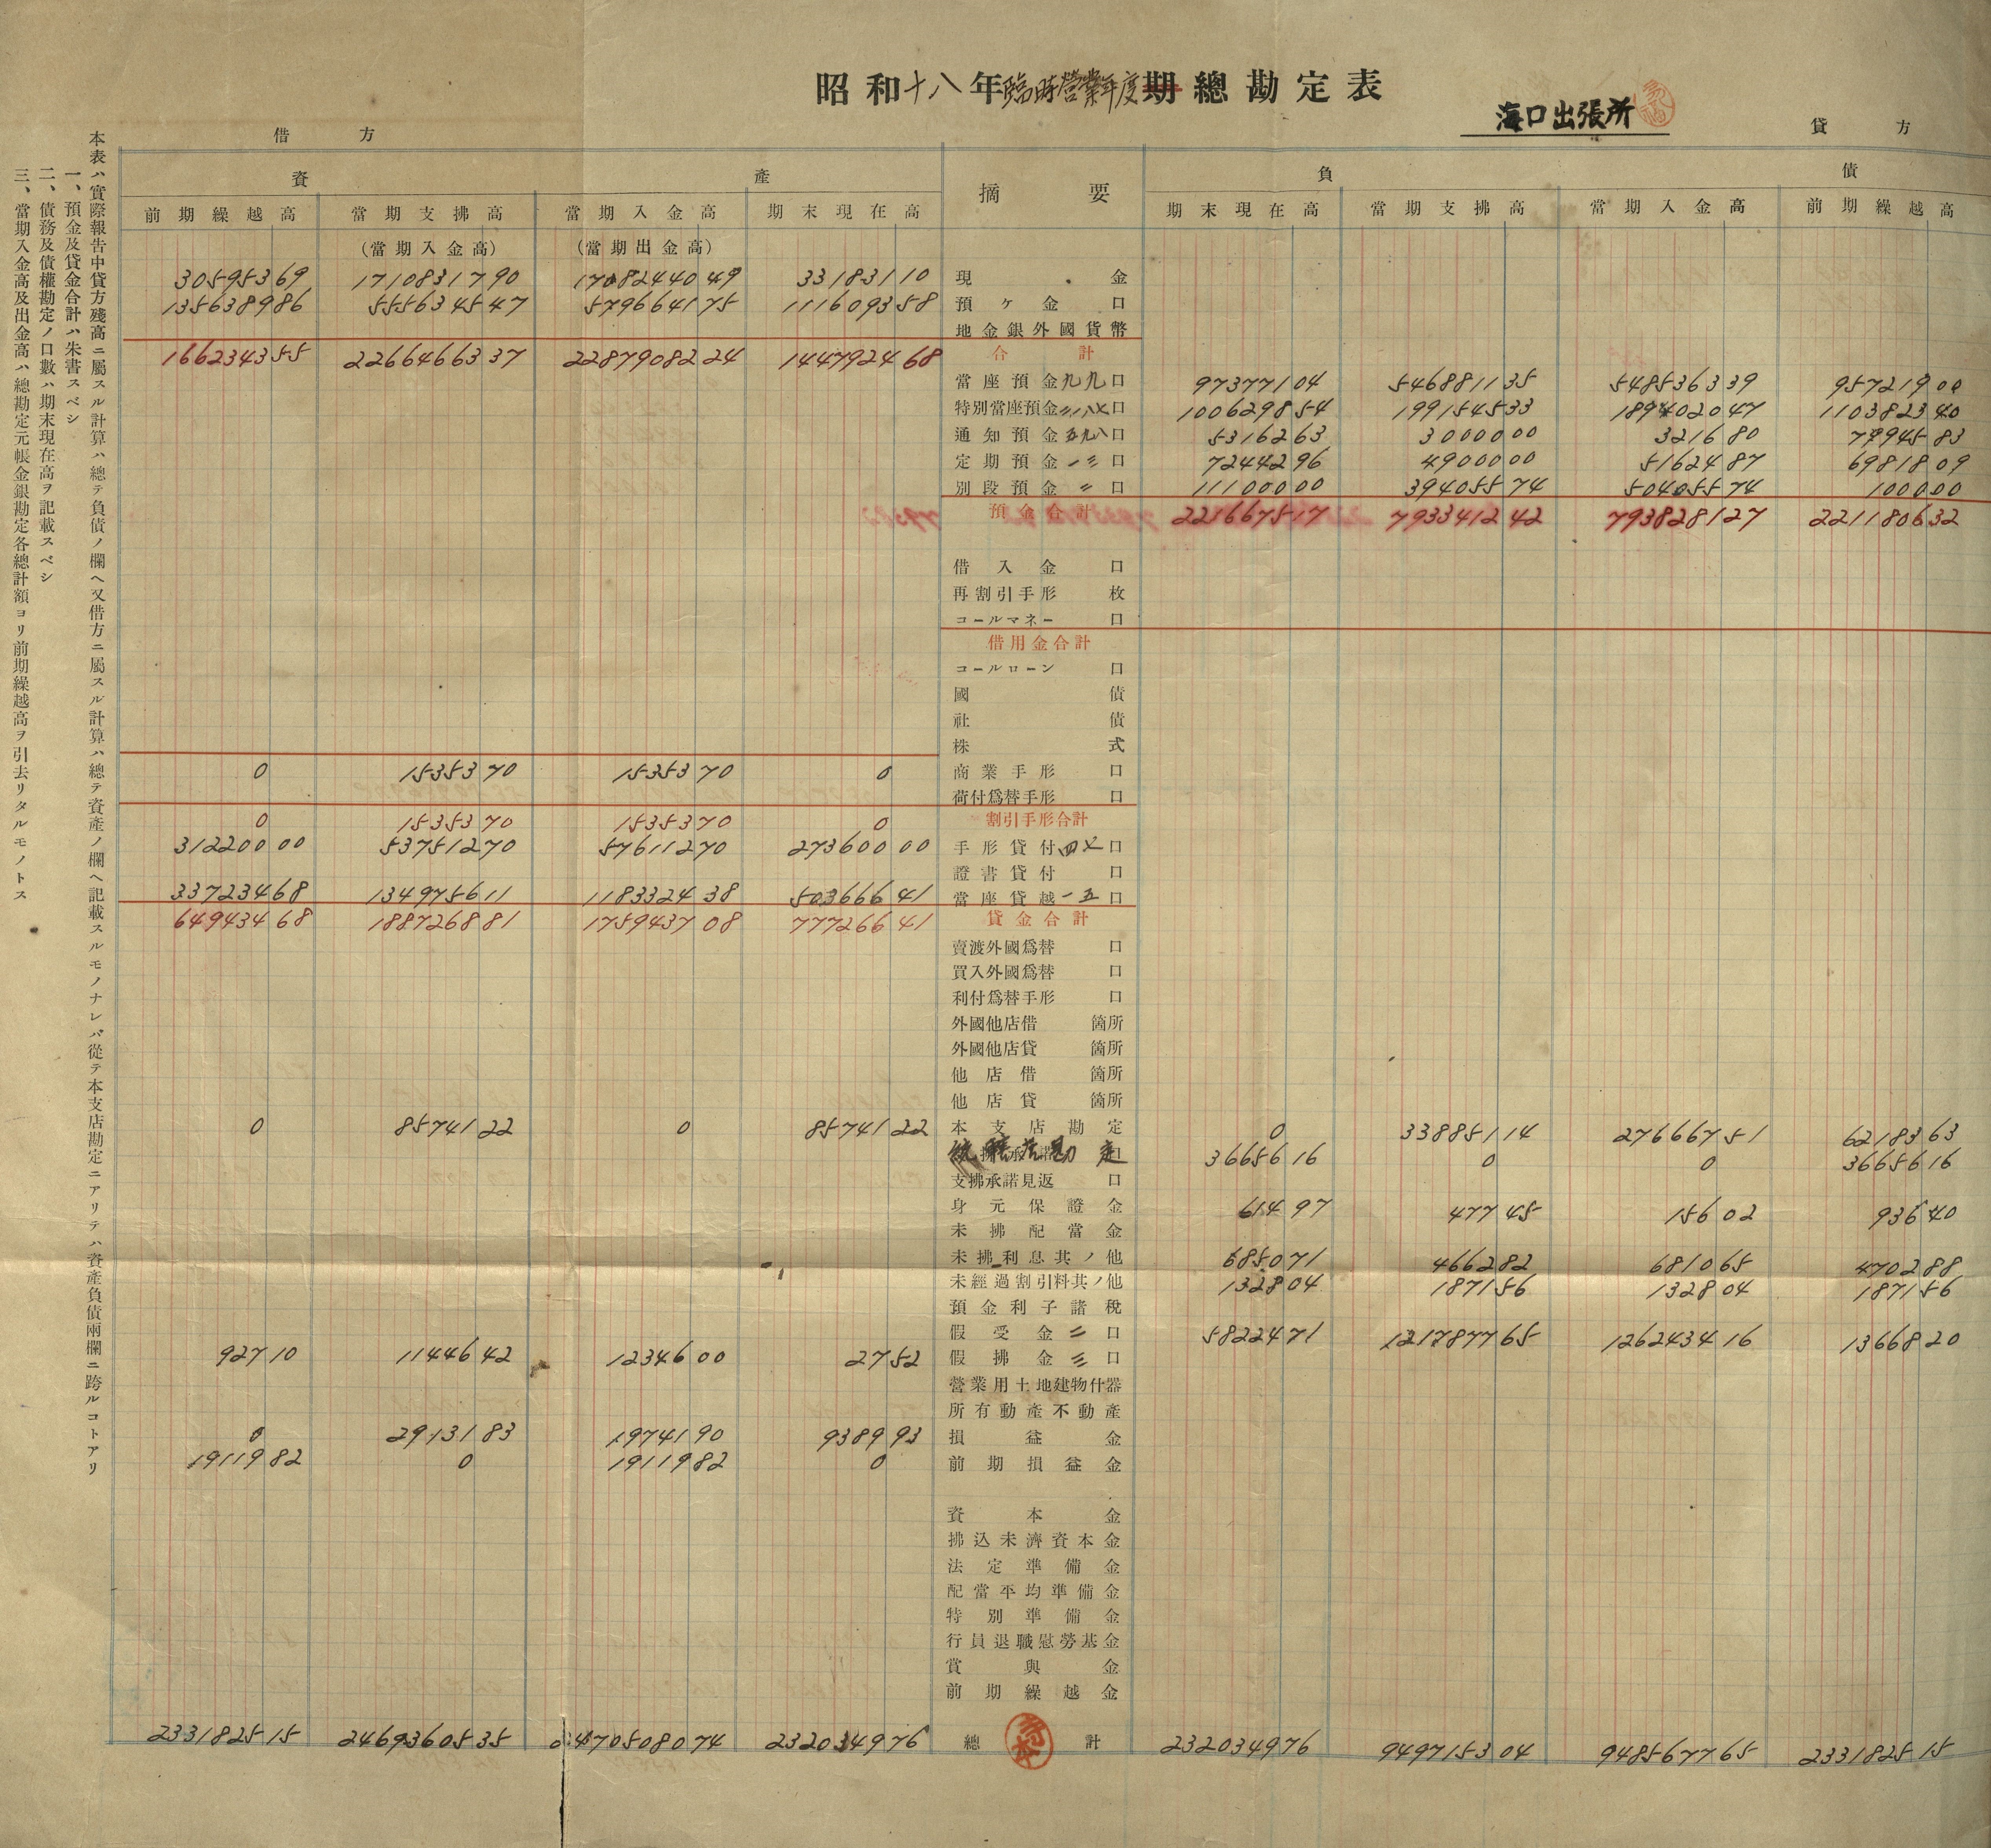 昭和十八年臨時營業年度期總勘定表
海口出張所
借方 貸方
資產 摘要 負債
前期繰越高 當期支拂高 當期入金高 期末現在高 期末現在高 當期支拂高 當期入金高 前期繰越高
(當期入金高) (當期出金高)
305953 69 17108317 90 17082440 49 331831 10 現金
1356389 86 5556345 47 5796641 75 1116093 58 預ケ金 口
地金銀外國貨幣
1662343 55 22664663 37 22879082 24 1447924 68 合計
當座預金九九口 973771 04 5468811 35 5485363 39 957219 00
特別當座預金二、一八七口 1006298 54 1991545 33 1894020 47 1103823 40
通知預金五九八口 53162 63 30000 00 3216 80 79945 83
定期預金一三口 72442 96 49000 00 51624 87 69818 09
別段預金二口 111000 00 394055 74 504055 74 1000 00
預金合計 2216675 17 7933412 42 7938281 27 2211806 32
借入金 口
再割引手形 枚
コールマネー 口
借用金合計
コールローン 口
國債
社債
株式
0 15353 70 15353 70 0 商業手形 口
荷付爲替手形 口
0 15353 70 15353 70 0 割引手形合計
312200 00 537512 70 576112 70 273600 00 手形貸付四七口
證書貸付 口
337234 68 1349756 11 1183324 38 503666 41 當座貸越一五口
649434 68 1887268 81 1759437 08 777266 41 貸金合計
賣渡外國爲替 口
買入外國爲替 口
利付爲替手形 口
外國他店借 箇所
外國他店貸 箇所
他店借 箇所
他店貸 箇所
0 85741 22 0 85741 22 本支店勘定 0 338851 14 276667 51 62183 63
統轄店勘定 36656 16 0 0 36656 16
支拂承諾見返 口
身元保證金 614 97 477 45 156 02 936 40
未拂配當金
未拂利息其ノ他 6850 71 4662 82 6810 65 4702 88
未經過割引料其ノ他 1328 04 1871 56 1328 04 1871 56
預金利子諸稅
假受金二口 58224 71 1217877 65 1262434 16 13668 20
927 10 11446 42 12346 00 27 52 假拂金三口
營業用土地建物什器
所有動產不動產
0 29131 83 19741 90 9389 93 損益金
19119 82 0 19119 82 0 前期損益金
資本金
拂込未濟資本金
法定準備金
配當平均準備金
特別準備金
行員退職慰勞基金
賞與金
前期繰越金
2331825 15 24693605 35 24705080 74 2320349 76 總計 2320349 76 9497153 04 9485677 65 2331825 15
本表ハ實際報告中貸方殘高ニ屬スル計算ハ總テ負債ノ欄ヘ又借方ニ屬スル計算ハ總テ資產ノ欄ヘ記載スルモノナレバ從テ本支店勘定ニアリテハ資產負債兩欄ニ跨ルコトアリ
一、預金及貸金合計ハ朱書スベシ
二、債務及債權勘定ノ口數ハ期末現在高ヲ記載スベシ
三、當期入金高及出金高ハ總勘定元帳金銀勘定各總計額ヨリ前期繰越高ヲ引去リタルモノトス